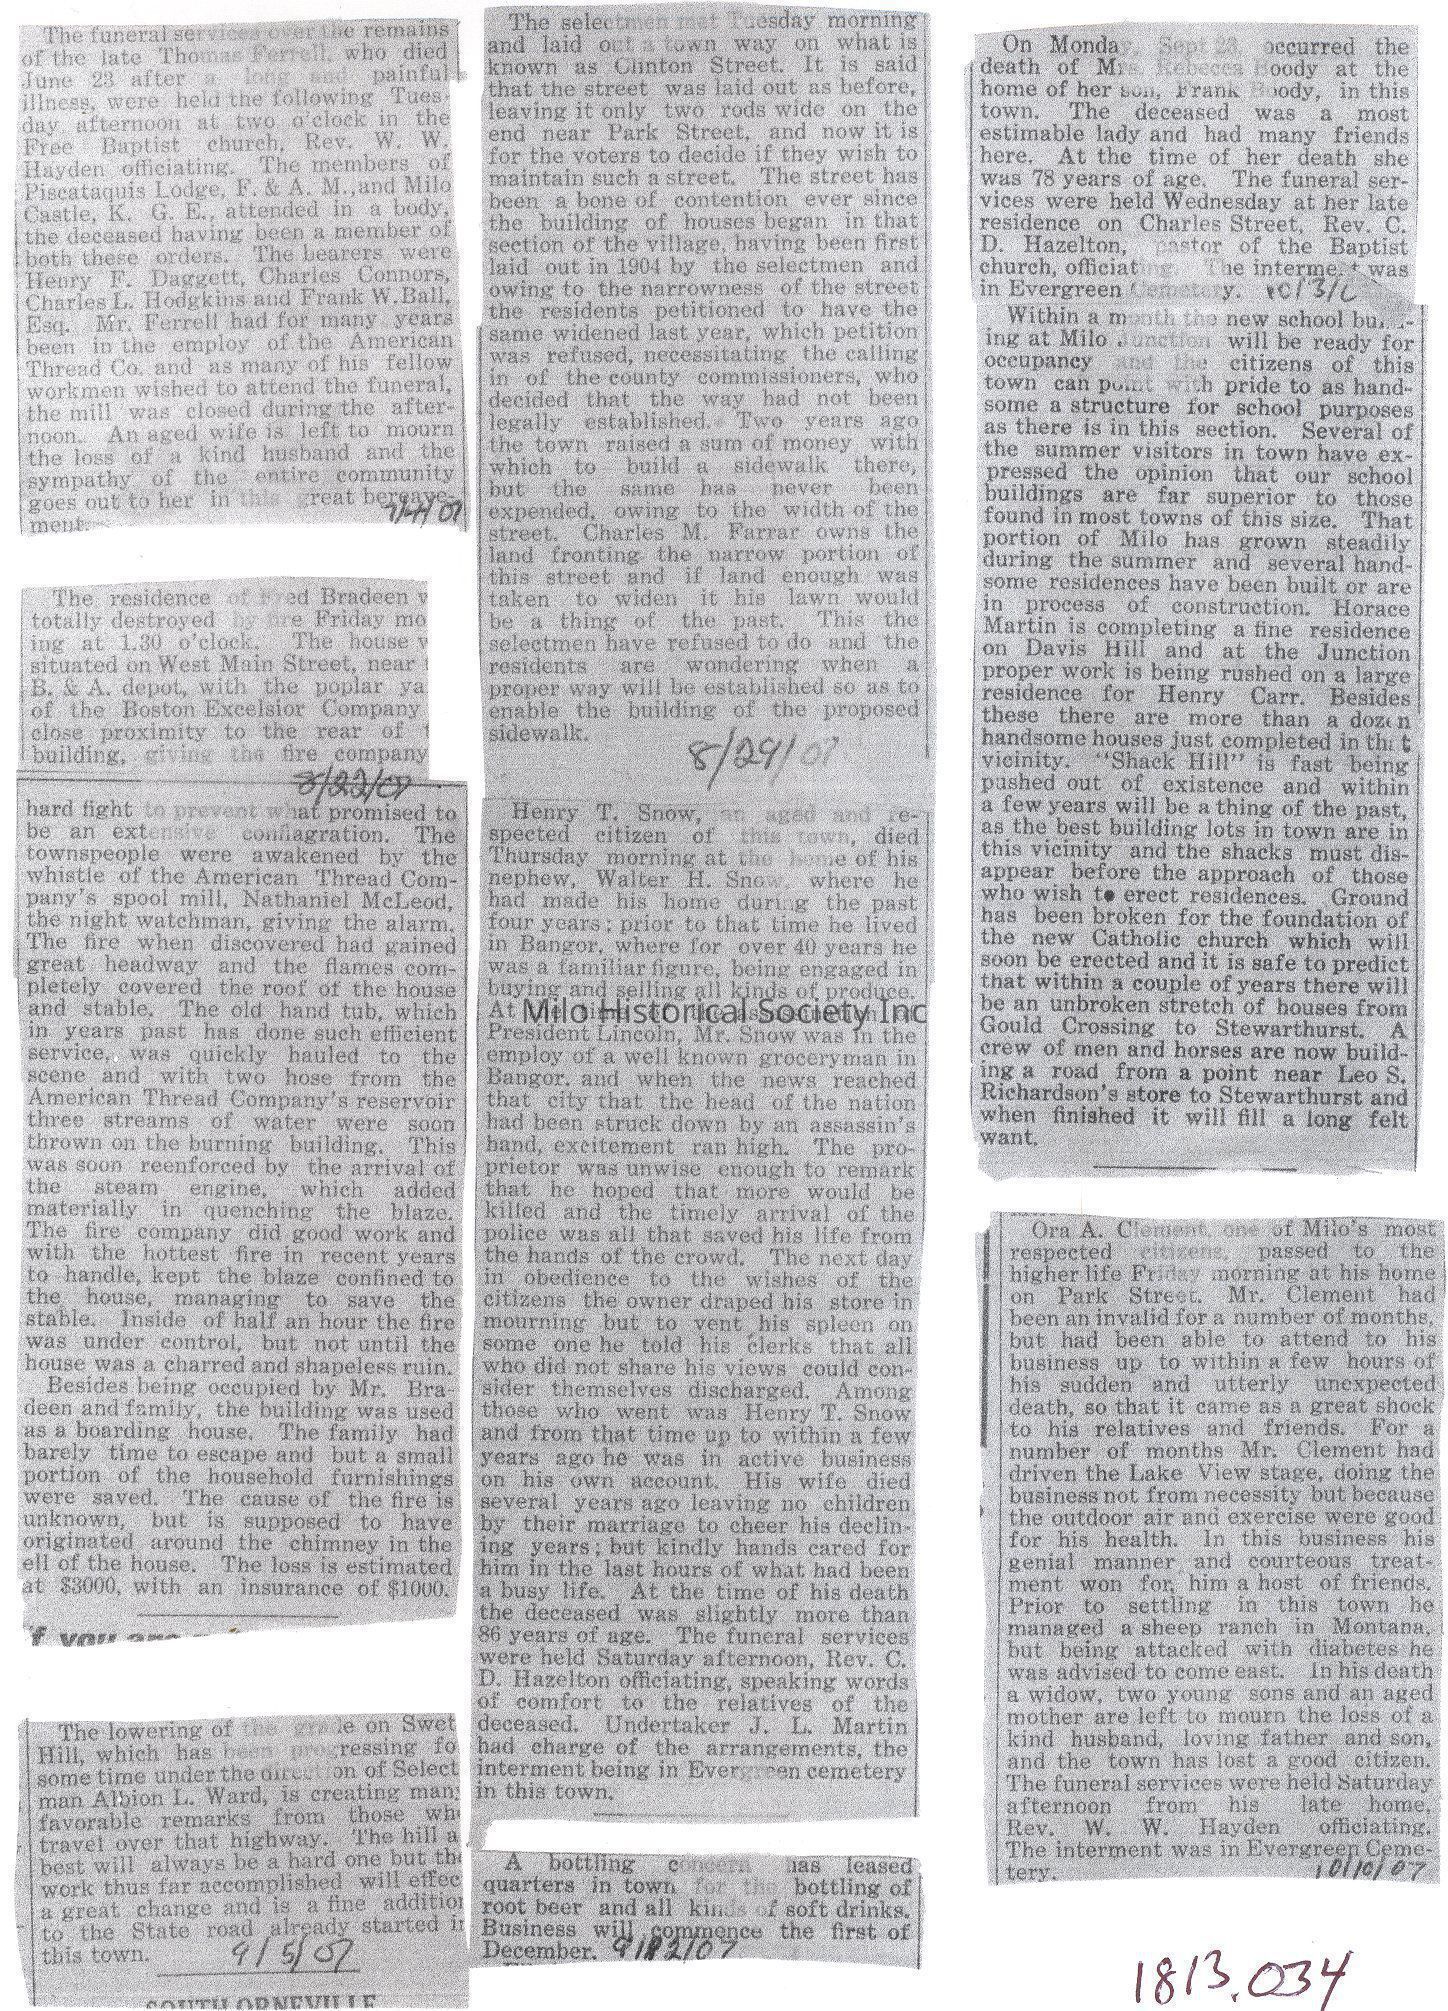 The funeral services over the remains
of the late Thomas Ferrell who died
June 23 after a long and painful
illness, were held the following Tues-
day afternoon at two o'clock in the
Free Baptist church, Rev. W. W.
Hayden officiating. The members of
Piscataquis Lodge, F. & A. M., and Milo
Castle, K. G. E., attended in a body,
the deceased having been a member of
both these orders. The bearers were
Henry F. Daggett, Charles Connors,
Charles L. Hodgkins and Frank W. Ball,
Esq. Mr. Ferrell had for many years
been in the employ of the American
Thread Co. and as many of his fellow
workmen wished to attend the funeral,
the mill was closed during the after-
noon. An aged wife is left to mourn
the loss of a kind husband and the
sympathy of the entire community
goes out to her in this great bereave-
ment.
7/4/07
The residence of Fred Bradeen w
totally destroyed by fire Friday mo
ing at 1.30 o'clock. The house w
situated on West Main Street, near t
B. & A. depot, with the poplar ya
of the Boston Excelsior Company
close proximity to the rear of t
building, giving the fire company
8/22/07
hard fight to prevent what promised to
be an extensive conflagration. The
townspeople were awakened by the
whistle of the American Thread Com-
pany's spool mill, Nathaniel McLeod,
the night watchman, giving the alarm.
The fire when discovered had gained
great headway and the flames com-
pletely covered the roof of the house
and stable. The old hand tub, which
in years past has done such efficient
service, was quickly hauled to the
scene and with two hose from the
American Thread Company's reservoir
three streams of water were soon
thrown on the burning building. This
was soon reenforced by the arrival of
the steam engine, which added
materially in quenching the blaze.
The fire company did good work and
with the hottest fire in recent years
to handle, kept the blaze confined to
the house, managing to save the
stable. Inside of half an hour the fire
was under control, but not until the
house was a charred and shapeless ruin.
Besides being occupied by Mr. Bra-
deen and family, the building was used
as a boarding house. The family had
barely time to escape and but a small
portion of the household furnishings
were saved. The cause of the fire is
unknown, but is supposed to have
originated around the chimney in the
ell of the house. The loss is estimated
at $3000, with an insurance of $1000.
f you are
The lowering of the grade on Swet
Hill, which has been progressing fo
some time under the direction of Select
man Albion L. Ward, is creating many
favorable remarks from those who
travel over that highway. The hill a
best will always be a hard one but the
work thus far accomplished will effec
a great change and is a fine addition
to the State road already started in
this town.
9/5/07
SOUTH ORNEVILLE
The selectmen met Tuesday morning
and laid out a town way on what is
known as Clinton Street. It is said
that the street was laid out as before,
leaving it only two rods wide on the
end near Park Street, and now it is
for the voters to decide if they wish to
maintain such a street. The street has
been a bone of contention ever since
the building of houses began in that
section of the village, having been first
laid out in 1904 by the selectmen and
owing to the narrowness of the street
the residents petitioned to have the
same widened last year, which petition
was refused, necessitating the calling
in of the county commissioners, who
decided that the way had not been
legally established. Two years ago
the town raised a sum of money with
which to build a sidewalk there,
but the same has never been
expended, owing to the width of the
street. Charles M. Farrar owns the
land fronting the narrow portion of
this street and if land enough was
taken to widen it his lawn would
be a thing of the past. This the
selectmen have refused to do and the
residents are wondering when a
proper way will be established so as to
enable the building of the proposed
sidewalk.
8/29/07
Henry T. Snow, an aged and re-
spected citizen of this town, died
Thursday morning at the home of his
nephew, Walter H. Snow, where he
had made his home during the past
four years; prior to that time he lived
in Bangor, where for over 40 years he
was a familiar figure, being engaged in
buying and selling all kinds of produce.
At the time of the assassination of
Milo Historical Society Inc
President Lincoln, Mr. Snow was in the
employ of a well known groceryman in
Bangor, and when the news reached
that city that the head of the nation
had been struck down by an assassin's
hand, excitement ran high. The pro-
prietor was unwise enough to remark
that he hoped that more would be
killed and the timely arrival of the
police was all that saved his life from
the hands of the crowd. The next day
in obedience to the wishes of the
citizens the owner draped his store in
mourning but to vent his spleen on
some one he told his clerks that all
who did not share his views could con-
sider themselves discharged. Among
those who went was Henry T. Snow
and from that time up to within a few
years ago he was in active business
on his own account. His wife died
several years ago leaving no children
by their marriage to cheer his declin-
ing years; but kindly hands cared for
him in the last hours of what had been
a busy life. At the time of his death
the deceased was slightly more than
86 years of age. The funeral services
were held Saturday afternoon, Rev. C.
D. Hazelton officiating, speaking words
of comfort to the relatives of the
deceased. Undertaker J. L. Martin
had charge of the arrangements, the
interment being in Evergreen cemetery
in this town.
A bottling concern has leased
quarters in town for the bottling of
root beer and all kinds of soft drinks.
Business will commence the first of
December.
On Monday, Sept 23, occurred the
death of Mrs. Rebecca Hoody at the
home of her son, Frank Hoody, in this
town. The deceased was a most
estimable lady and had many friends
here. At the time of her death she
was 78 years of age. The funeral ser-
vices were held Wednesday at her late
residence on Charles Street, Rev. C.
D. Hazelton, pastor of the Baptist
church, officiating. The interment was
in Evergreen Cemetery.
Within a month the new school build-
ing at Milo Junction will be ready for
occupancy and the citizens of this
town can point with pride to as hand-
some a structure for school purposes
as there is in this section. Several of
the summer visitors in town have ex-
pressed the opinion that our school
buildings are far superior to those
found in most towns of this size. That
portion of Milo has grown steadily
during the summer and several hand-
some residences have been built or are
in process of construction. Horace
Martin is completing a fine residence
on Davis Hill and at the Junction
proper work is being rushed on a large
residence for Henry Carr. Besides
these there are more than a dozen
handsome houses just completed in that
vicinity. "Shack Hill" is fast being
pushed out of existence and within
a few years will be a thing of the past,
as the best building lots in town are in
this vicinity and the shacks must dis-
appear before the approach of those
who wish to erect residences. Ground
has been broken for the foundation of
the new Catholic church which will
soon be erected and it is safe to predict
that within a couple of years there will
be an unbroken stretch of houses from
Gould Crossing to Stewarthurst. A
crew of men and horses are now build-
ing a road from a point near Leo S.
Richardson's store to Stewarthurst and
when finished it will fill a long felt
want.
Ora A. Clement, one of Milo's most
respected citizens, passed to the
higher life Friday morning at his home
on Park Street. Mr. Clement had
been an invalid for a number of months,
but had been able to attend to his
business up to within a few hours of
his sudden and utterly unexpected
death, so that it came as a great shock
to his relatives and friends. For a
number of months Mr. Clement had
driven the Lake View stage, doing the
business not from necessity but because
the outdoor air and exercise were good
for his health. In this business his
genial manner and courteous treat-
ment won for him a host of friends.
Prior to settling in this town he
managed a sheep ranch in Montana,
but being attacked with diabetes he
was advised to come east. In his death
a widow, two young sons and an aged
mother are left to mourn the loss of a
kind husband, loving father and son,
and the town has lost a good citizen.
The funeral services were held Saturday
afternoon from his late home,
Rev. W. W. Hayden officiating.
The interment was in Evergreen Ceme-
tery.
10/10/07
1813.034